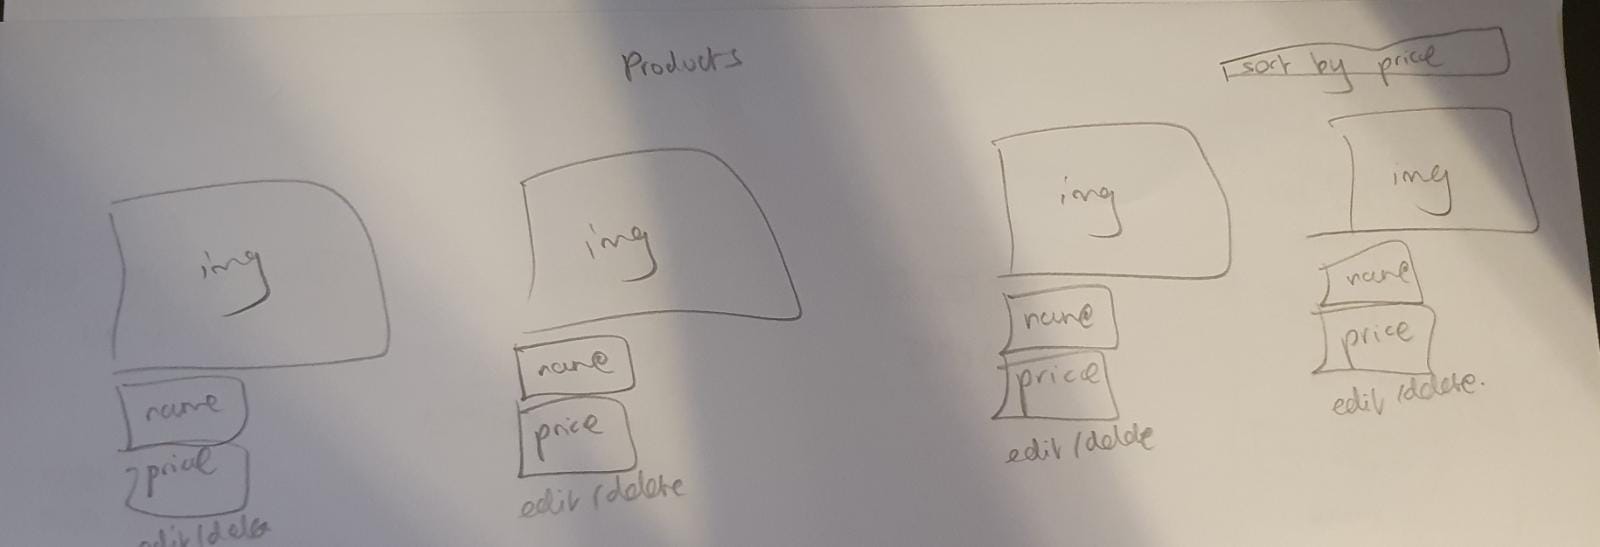 Products
sort by price
img
name
price
img
name
price
edit/delete
img
name
price
img
name
price
edit/delete.